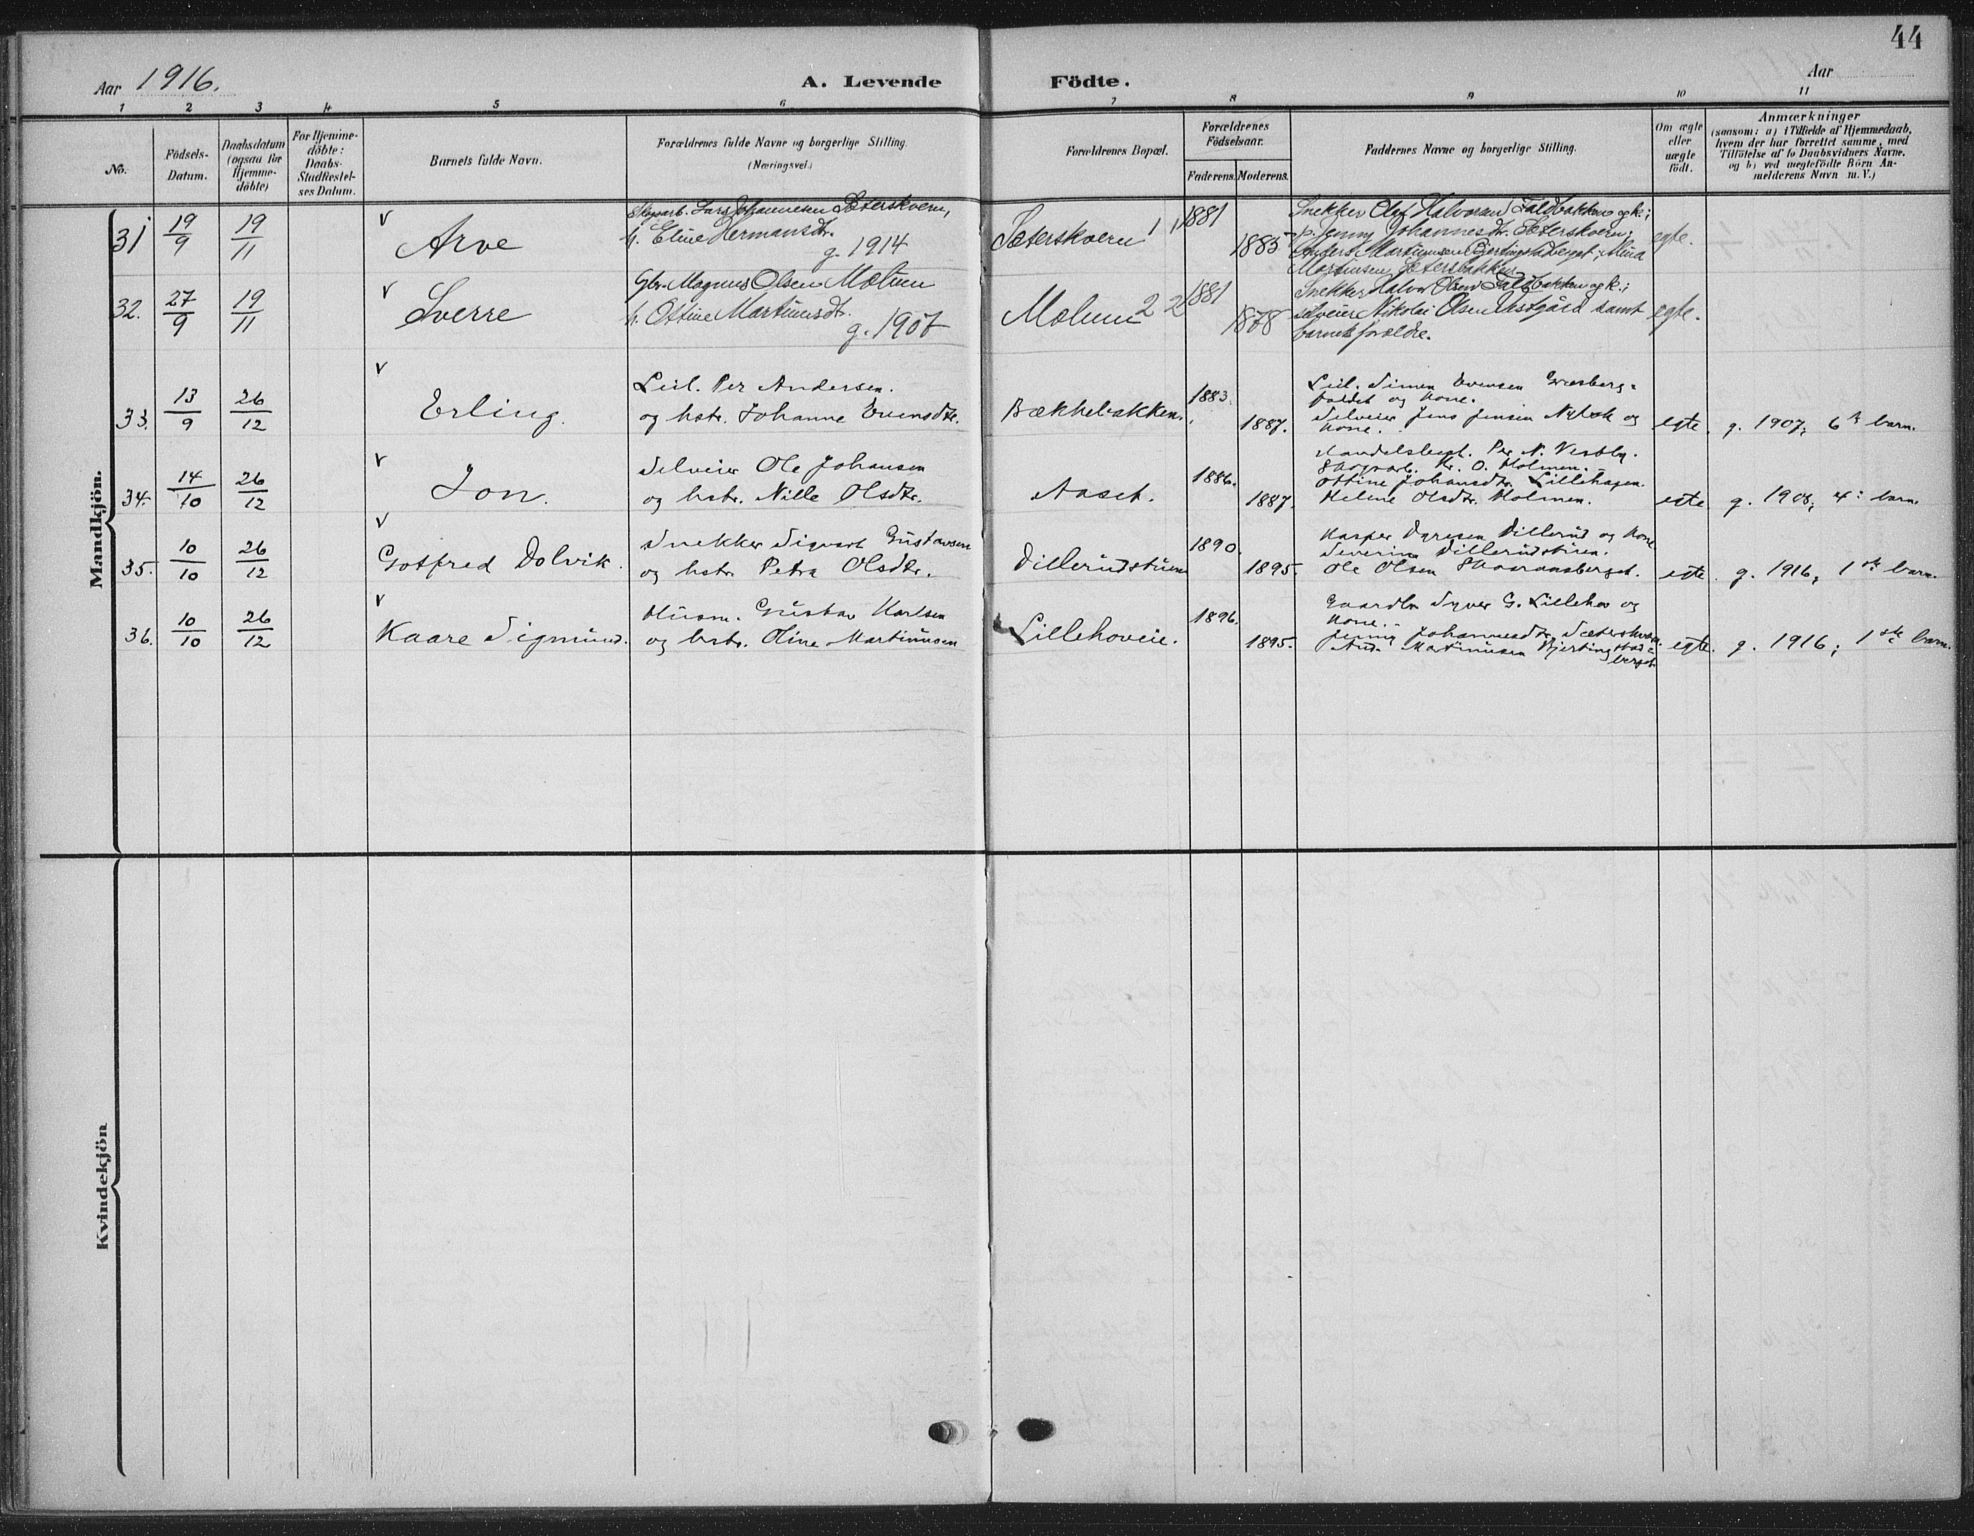 44
Aar 1916.
A. Levende Födte.
Aar
1 2 3 4 5 6 7 8 9 10 11
No.
Födsels-
Datum.
Daabsdatum
(ogsaa for
Hjemme-
döbte)
For Hjemme-
döbte:
Daabs-
Stadfæstel-
ses Datum.
Barnets fulde Navn.
Forældrenes fulde Navne og borgerlige Stilling.
(Næringsvei.)
Forældrenes Bopæl.
Forældrenes
Födselsaar.
Faderens. Moderens.
Faddernes Navne og borgerlige Stilling.
Om ægte
eller
uægte
födt.
Anmærkninger
(saasom: a) i Tilfælde af Hjemmedaab,
hvem der har forrettet samme, med
Tilföielse af to Daabsvidners Navne.
og b) ved uegtefödte Börn An-
melderens Navn m. V.)
Mandkjön.
31 19/9 19/11 v Arve
Skogsarb. Lars Johannesen Sæterskvern,
h. Eline Hermansdt.
g. 1914
Sæterskvern 1 1 1881 1885
Snekker Olaf Halvorsen Faldbakken og k.;
p. Jenny Johannesdt. Sæterskvern;
Anders Martinusen Bjertingstadberget; Alma
Martinsen Sætersbakken
egte.
32. 27/9 19/11 v Sverre
Gbr. Magnus Olsen Molun
h. Ottine Martinusdt.
g. 1907
Molun 2 2 1881 1878
Snekker Halvor Olsen Faldbakken og k.;
selveier Nikolai Olsen samt
barnets forældre.
egte.
33. 13/9 26/12 v Erling.
Leil. Per Andersen.
og hstr. Johanne Evensdtr.
Bækkebakken. 1883. 1887.
Leil. Simen Evensen Græsberg-
foldet og kone.
Selveier Jens Jensen og
kone.
egte. g. 1907; 6te barn.
34. 14/10 26/12 v Jon.
Selveier Ole Johansen
og hstr. Nille Olsdtr.
Aaset. 1886. 1887.
Handelsbest. Per N. Vestby.
Skogsarb. Kr. O. Holmen.
Ottine Johansdtr. Lillehagen.
Helene Olsdtr. Holmen.
egte g. 1908; 4: barn.
35. 10/10 26/12 v Gotfred Dolvik.
Snekker Sigvart Gustavsen
og hstr. Petra Olsdtr.
Dillerudstuen 1890. 1895.
Kasper Dyresen Dillerud og kone
Severine Dillerudstuen.
Ole Olsen
egte. g. 1916; 1ste barn.
36. 10/10 26/12 v Kaare Sigmund.
Husm. Gustav Karlsen
og hstr. Oline Martinusen
Lillehoveie. 1896. 1895.
Gaardbr. Syver G. Lillehov og
kone.
Jenny Johannesdtr. Sæterskvern.
And. Martinusen Bjertingstad-
berget.
egte. g. 1916; 1ste barn.
Kvindekjön